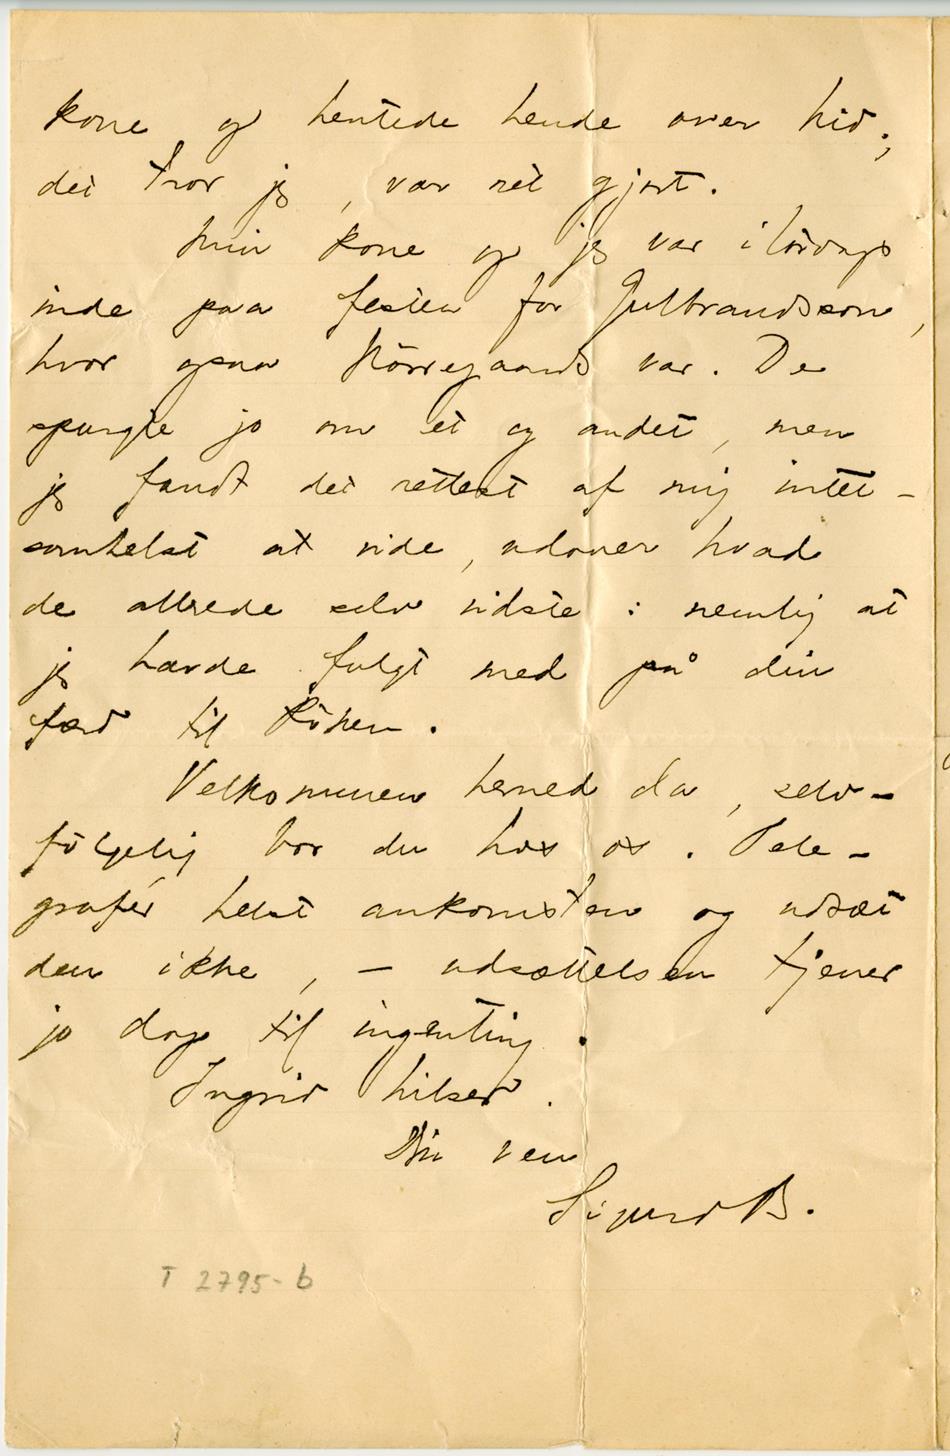 kone og hentede hende over hid;
det tror jeg, var ret gjort.
Min kone og jeg var ilørdags
inde paa festen for Gulbrandsson,
hvor ogsaa Nörregaards var. De
spurgte jo om et og andet, men
jeg fandt det rettest af mig intet-
somhelst at vide, udover hvad
de allrede selv vidste: nemlig at
jeg havde fulgt med på din
færd til Röken.
Velkommen herned da, selv-
følgelig bor du hos os. Tele-
grafér helst ankomsten og udsæt
den ikke, – udsættelsen tjener
jo dog til ingenting.
Ingrid hilser.
Din ven
Sigurd B.
T 2795-b